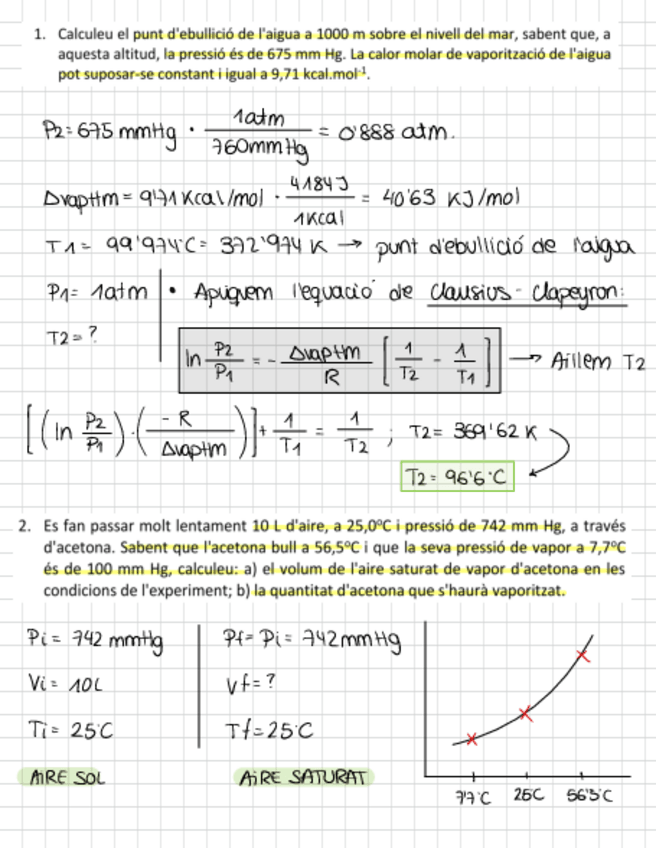 1. Calculeu el punt d'ebullició de l'aigua a 1000 m sobre el nivell del mar, sabent que, a
aquesta altitud, la pressió és de 675 mm Hg. La calor molar de vaporització de l'aigua
pot suposar-se constant i igual a 9,71 kcal.mol⁻¹.
P2= 675 mmHg · 1atm / 760mmHg = 0'888 atm.
ΔvapHm = 9'71 Kcal/mol · 4184J / 1Kcal = 40'63 KJ/mol
T1= 99'974°C= 372'974 K → punt d'ebullició de l'aigua
P1= 1atm • Apliquem l'equació de Clausius-Clapeyron:
T2=?
ln P2/P1 = - ΔvapHm/R [1/T2 - 1/T1] → Aïllem T2
[(ln P2/P1)·(-R/ΔvapHm)]+ 1/T1 = 1/T2 ; T2= 369'62 K
T2= 96'6°C
2. Es fan passar molt lentament 10 L d'aire, a 25,0ºC i pressió de 742 mm Hg, a través
d'acetona. Sabent que l'acetona bull a 56,5ºC i que la seva pressió de vapor a 7,7ºC
és de 100 mm Hg, calculeu: a) el volum de l'aire saturat de vapor d'acetona en les
condicions de l'experiment; b) la quantitat d'acetona que s'haurà vaporitzat.
Pi= 742 mmHg Pf= Pi= 742mmHg
Vi= 10L Vf=?
Ti= 25°C Tf=25°C
AIRE SOL AIRE SATURAT
7'7°C 25C 56'5°C